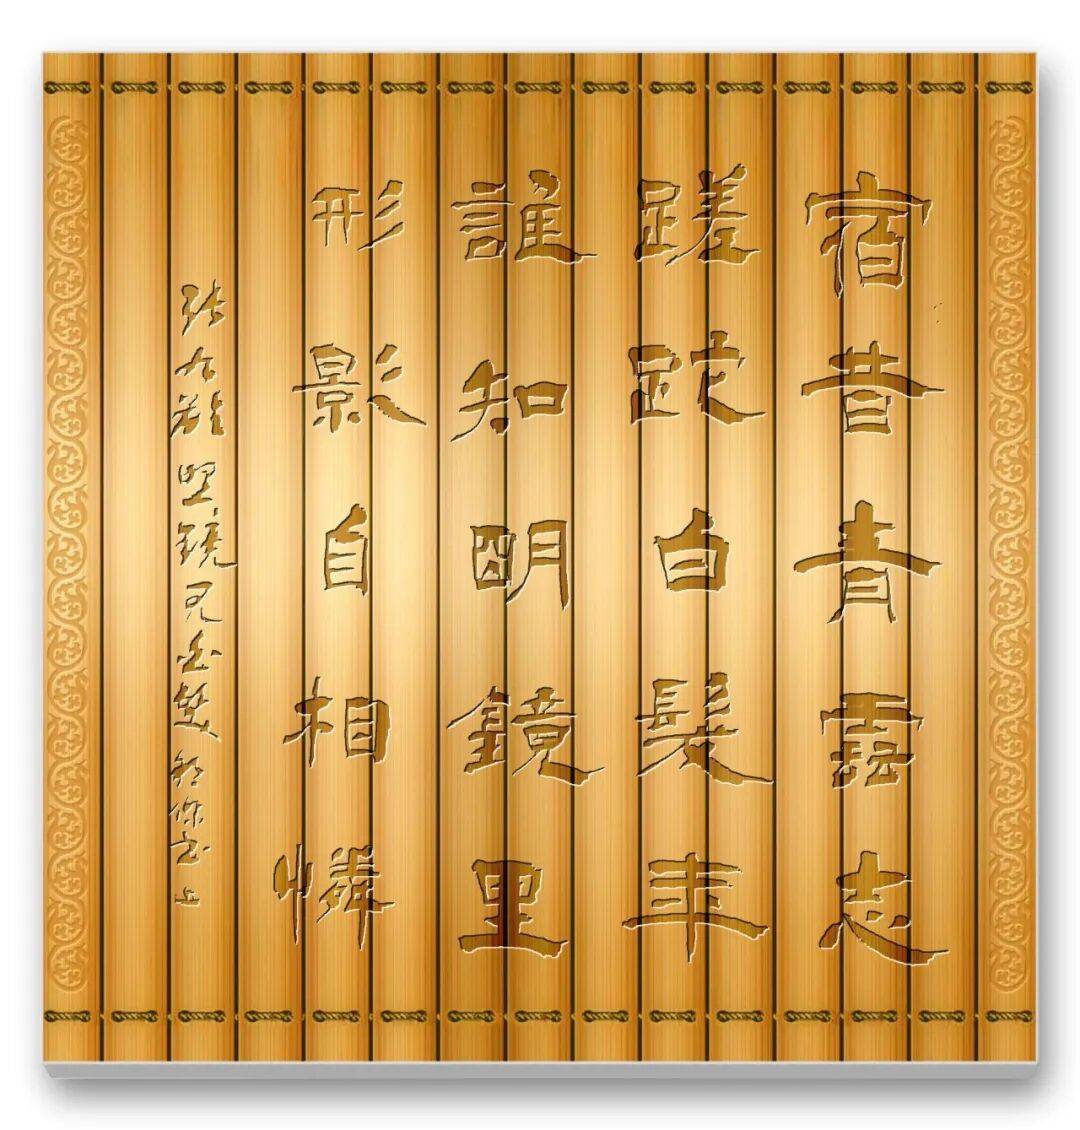 宿昔青雲志
蹉跎白髮年
誰知明鏡里
形影自相憐
张九龄照鏡見白髮